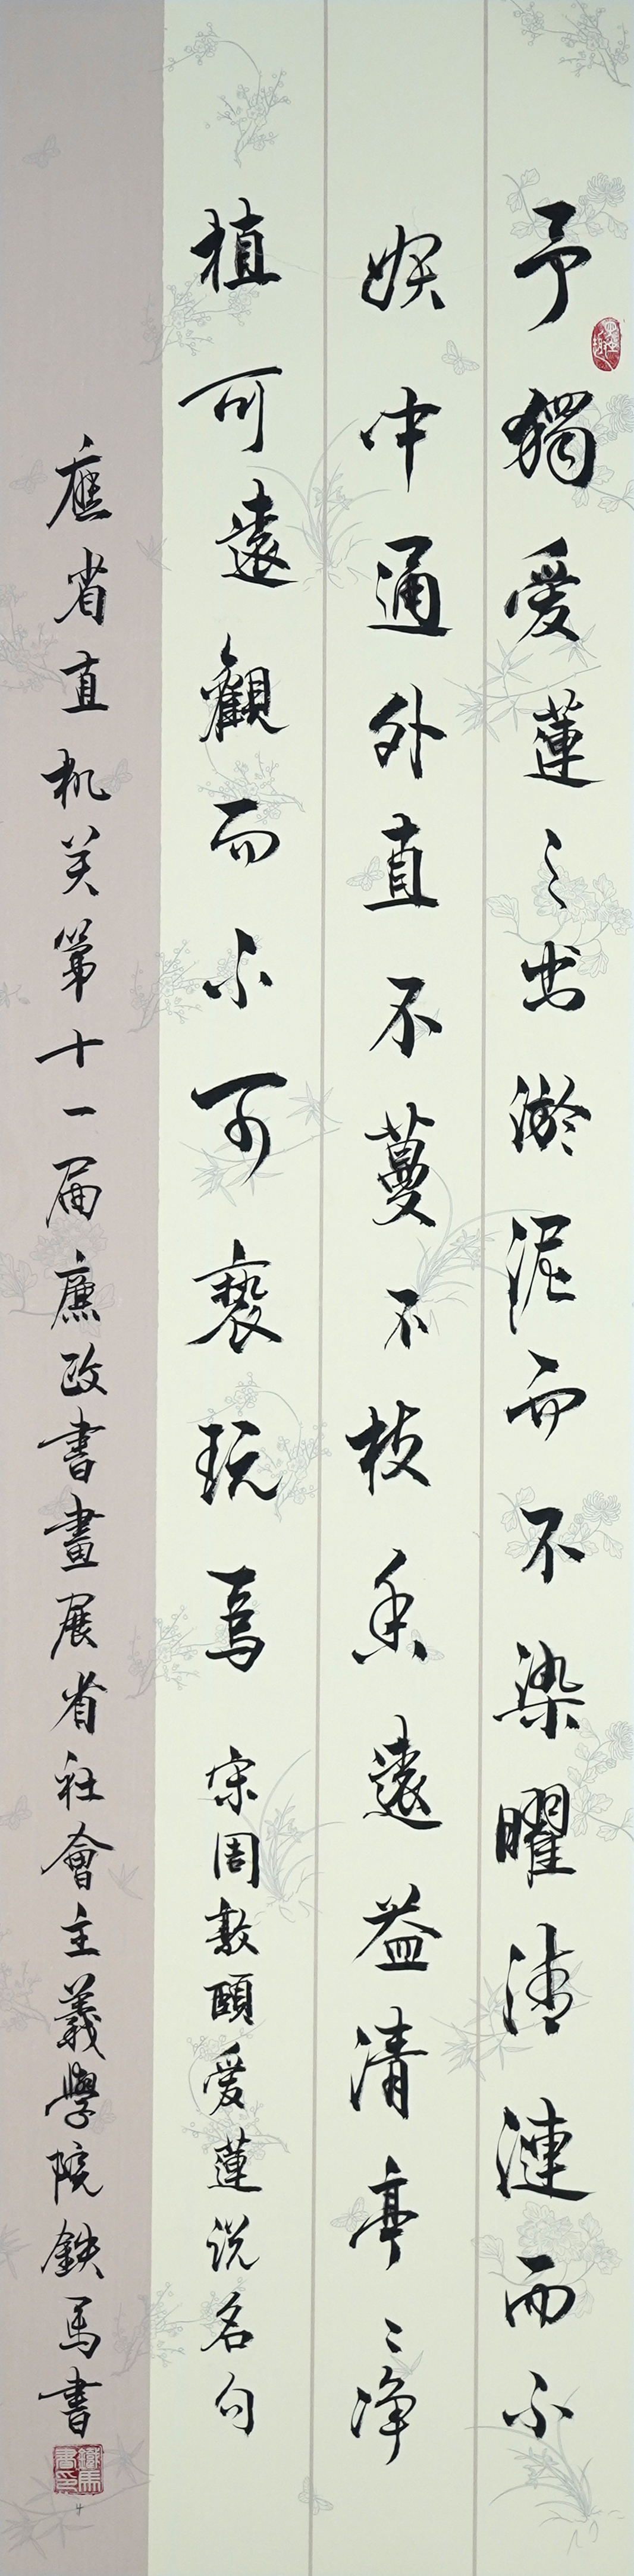 予獨愛蓮之出淤泥而不染曜清漣而不
娱中通外直不蔓不枝香遠益清亭〻净
植可遠觀而不可褻玩焉 宋周敦頤愛蓮説名句
應省直机关第十一届廉政書畫展省社會主義學院鉄馬書
鐵馬書印